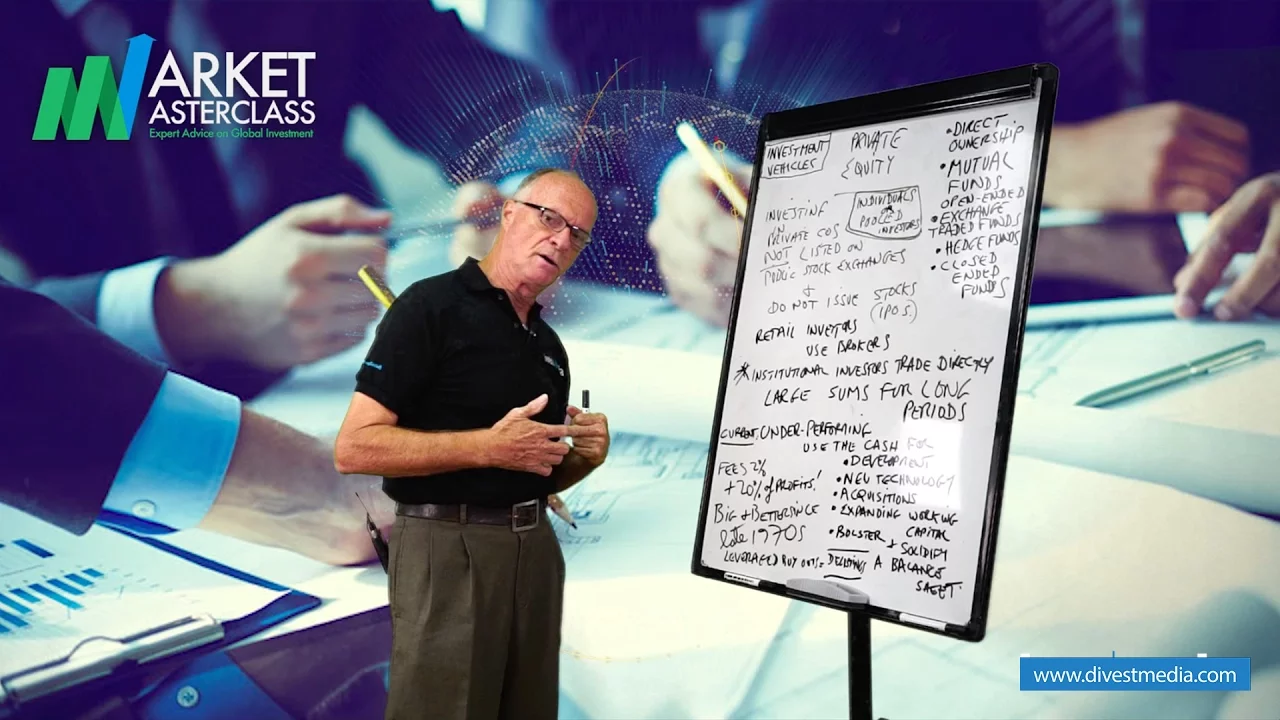 MARKET
MASTERCLASS
Expert Advice on Global Investment
INVESTMENT
VEHICLES
PRIVATE
EQUITY
INDIVIDUALS
POOLED
INVESTORS
INVESTING
IN
PRIVATE COS
NOT LISTED ON
PUBLIC STOCK EXCHANGES
+
DO NOT ISSUE STOCKS
(IPOS.)
RETAIL INVESTORS
USE BROKERS
* INSTITUTIONAL INVESTORS TRADE DIRECTLY
LARGE SUMS FOR LONG
PERIODS
• DIRECT
OWNERSHIP
• MUTUAL
FUNDS
OPEN-ENDED
• EXCHANGE
TRADED FUNDS
• HEDGE FUNDS
• CLOSED
ENDED
FUNDS
CURRENT, UNDER-PERFORMING
USE THE CASH FOR
• DEVELOPMENT
• NEW TECHNOLOGY
• ACQUISITIONS
• EXPANDING WORKING
CAPITAL
• BOLSTER +
SOLIDIFY
A BALANCE
SHEET
FEES 2%
+ 20% of PROFITS!
BIG & BETTER SINCE
late 1970s
LEVERAGED BUY OUTS =
www.divestmedia.com